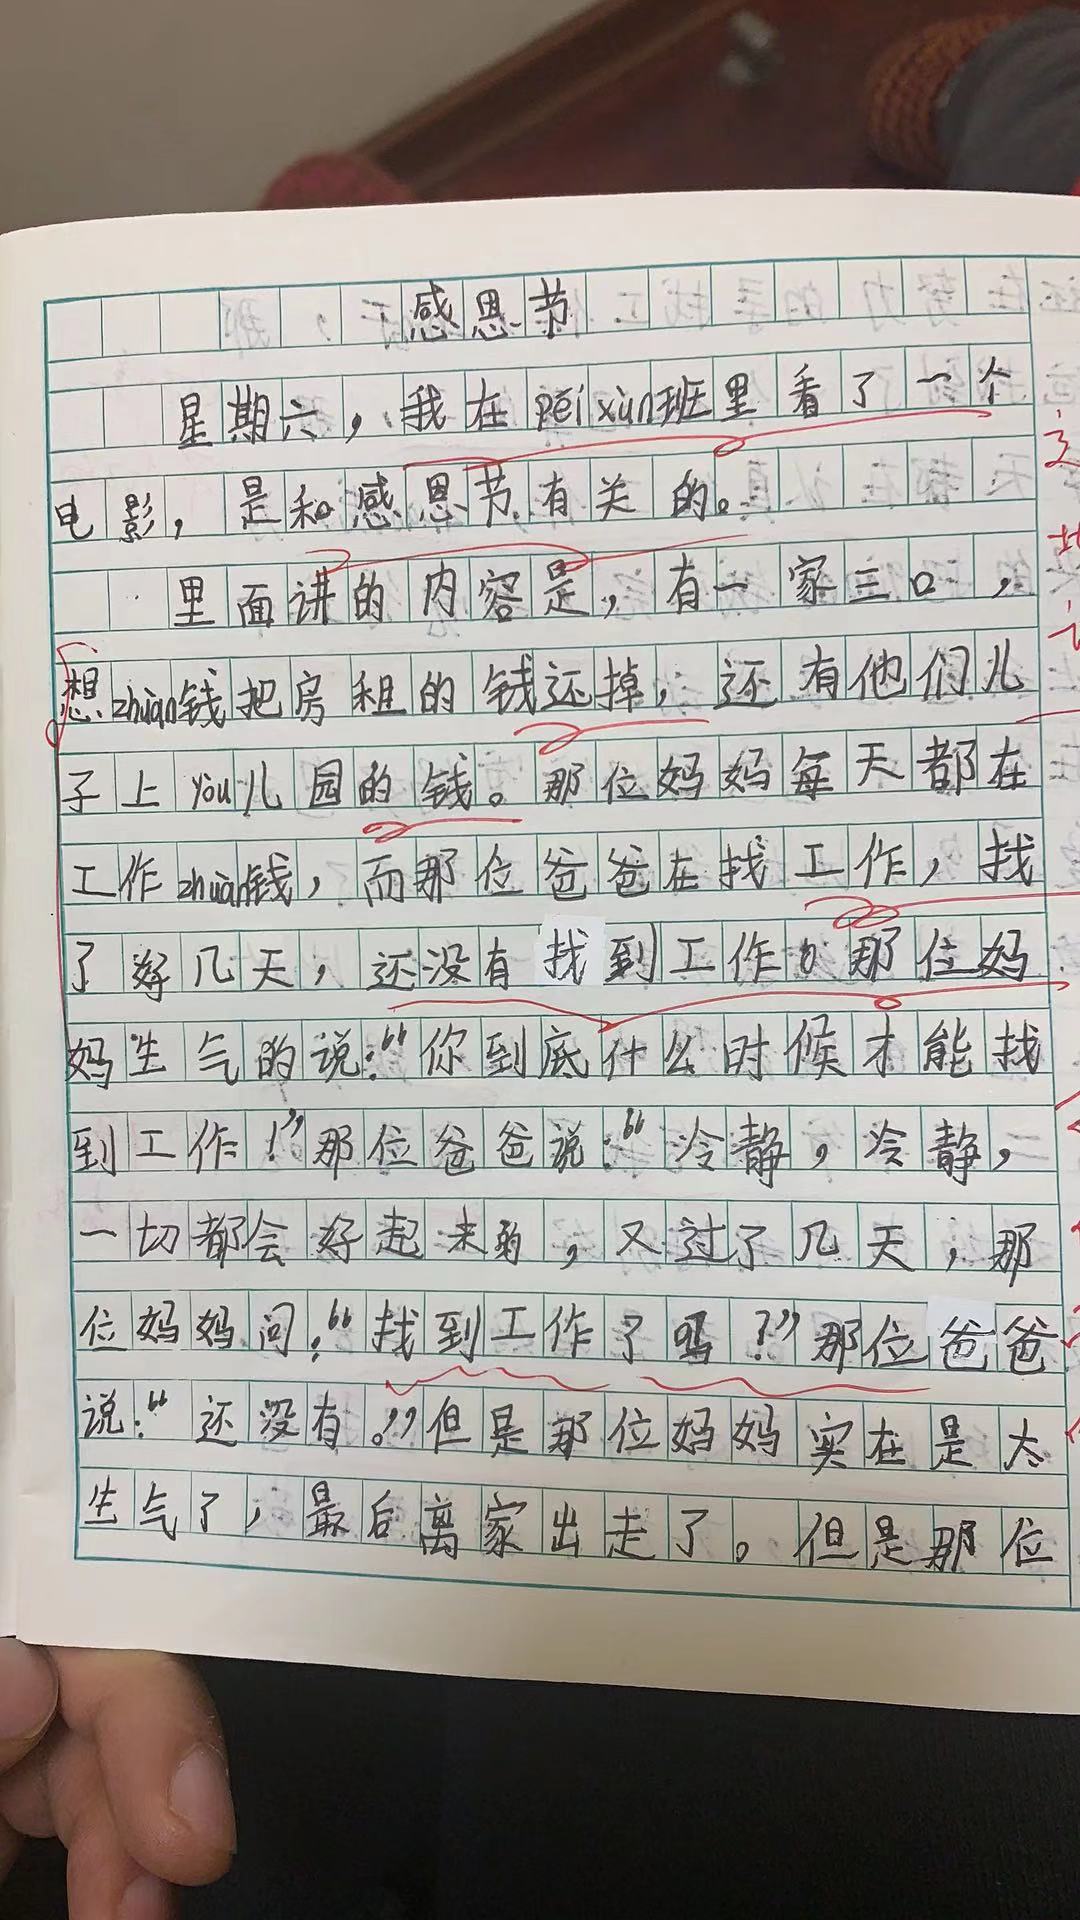 感恩节
星期六，我在pēixùn班里看了一个
电影，是和感恩节有关的。
里面讲的内容是，有一家三口，
想zhuàn钱把房租的钱还掉，还有他们儿
子上yòu儿园的钱。那位妈妈每天都在
工作zhuàn钱，而那位爸爸在找工作，找
了好几天，还没有找到工作。那位妈
妈生气的说：“你到底什么时候才能找
到工作！”那位爸爸说：“冷静，冷静，
一切都会好起来的，又过了几天，那
位妈妈问：“找到工作了吗？”那位爸爸
说：“还没有。”但是那位妈妈实在是太
生气了，最后离家出走了。但是那位